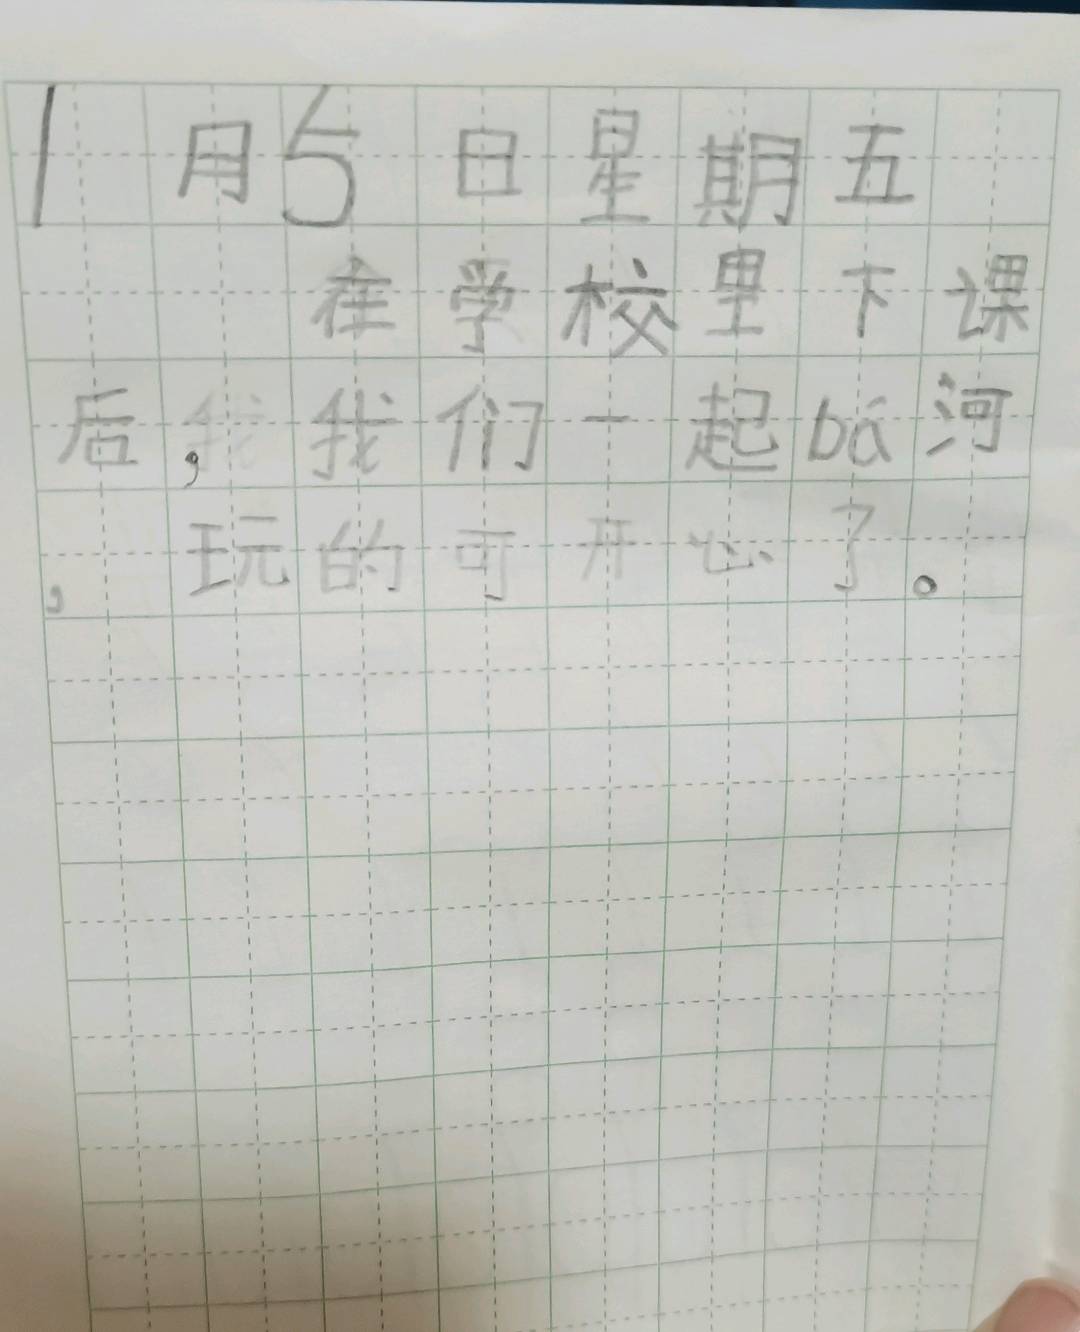 1月5日星期五
在学校里下课
后,我们一起bá河
,玩的可开心了。